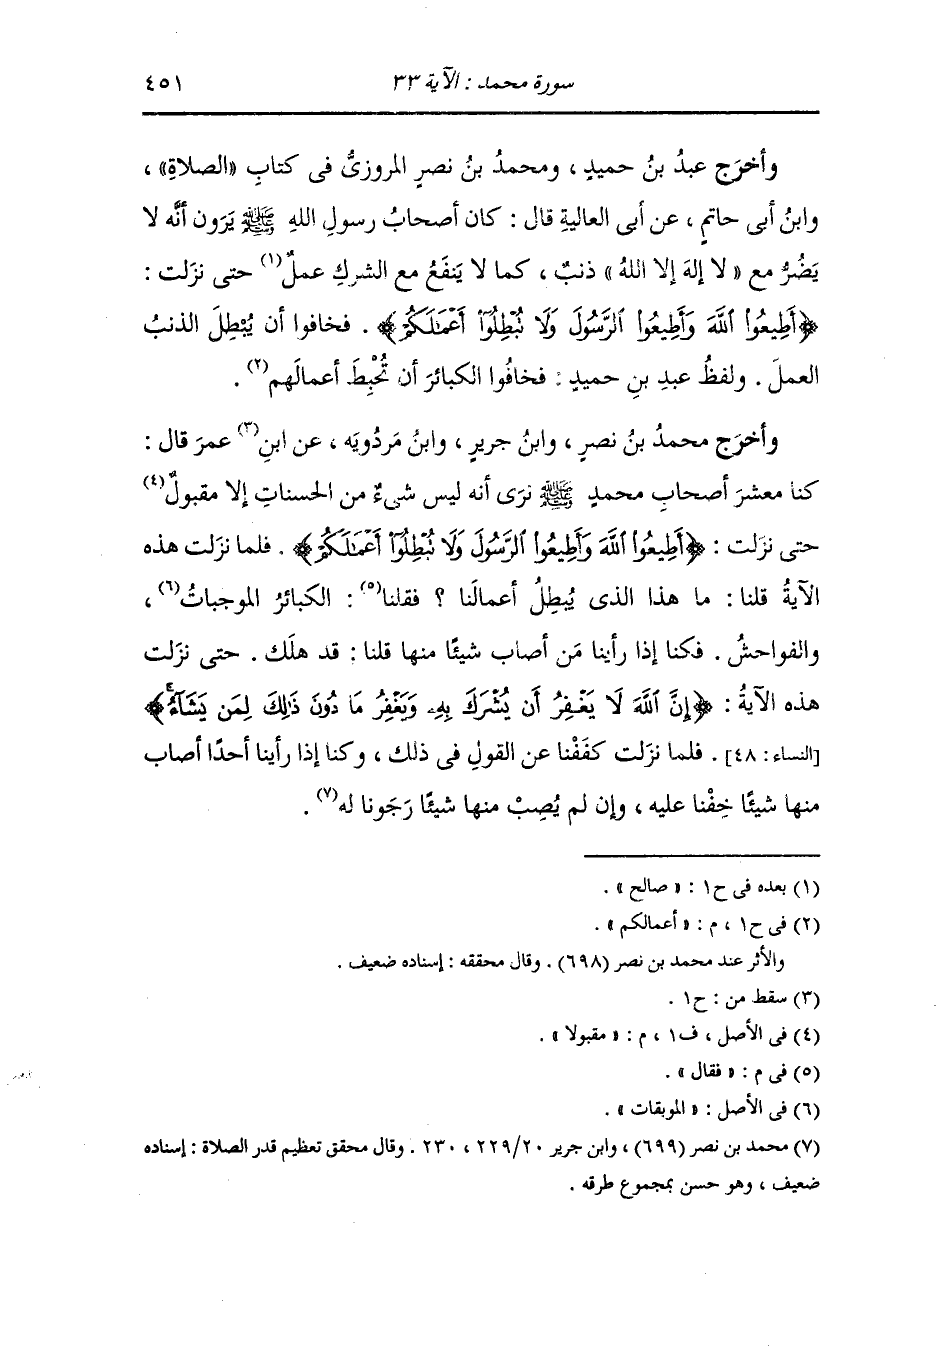 سورة محمد : الآية ٣٣ ٤٥١
وأخرَج عبدُ بنُ حميدٍ ، ومحمدُ بنُ نصرٍ المروزىُّ فى كتابِ «الصلاةِ» ،
وابنُ أبى حاتمٍ ، عن أبى العاليةِ قال : كان أصحابُ رسولِ اللهِ ﷺ يَرَون أنَّه لا
يَضُرُّ مع « لا إلهَ إلا اللهُ » ذنبٌ ، كما لا يَنفَعُ مع الشركِ عملٌ(١) حتى نزَلت :
﴿أَطِيعُوا۟ ٱللَّهَ وَأَطِيعُوا۟ ٱلرَّسُولَ وَلَا نُبْطِلُوٓا۟ أَعْمَـٰلَكُمْ﴾ . فخافوا أن يُبْطِلَ الذنبُ
العملَ . ولفظُ عبدِ بنِ حميدٍ : فخافُوا الكبائرَ أن تُحْبِطَ أعمالَهم(٢) .
وأخرَج محمدُ بنُ نصرٍ ، وابنُ جريرٍ ، وابنُ مَردُويَه ، عن ابنِ(٣) عمرَ قال :
كنا معشرَ أصحابِ محمدٍ ﷺ نرَى أنه ليس شىءٌ من الحسناتِ إلا مقبولٌ(٤)
حتى نزَلت : ﴿أَطِيعُوا۟ ٱللَّهَ وَأَطِيعُوا۟ ٱلرَّسُولَ وَلَا نُبْطِلُوٓا۟ أَعْمَـٰلَكُمْ﴾ . فلما نزَلت هذه
الآيةُ قلنا : ما هذا الذى يُبطِلُ أعمالَنا ؟ فقلنا(٥) : الكبائرُ الموجباتُ(٦) ،
والفواحشُ . فكنا إذا رأينا مَن أصاب شيئًا منها قلنا : قد هلَك . حتى نزَلت
هذه الآيةُ : ﴿إِنَّ ٱللَّهَ لَا يَغْفِرُ أَن يُشْرَكَ بِهِۦ وَيَغْفِرُ مَا دُونَ ذَٰلِكَ لِمَن يَشَآءُ﴾
[النساء : ٤٨] . فلما نزَلت كفَفْنا عن القولِ فى ذلك ، وكنا إذا رأينا أحدًا أصاب
منها شيئًا خِفْنا عليه ، وإن لم يُصِبْ منها شيئًا رَجَونا له(٧) .
(١) بعده فى ح١ : « صالح » .
(٢) فى ح١ ، م : « أعمالكم » .
والأثر عند محمد بن نصر (٦٩٨) . وقال محققه : إسناده ضعيف .
(٣) سقط من : ح١ .
(٤) فى الأصل ، ف١ ، م : « مقبولا » .
(٥) فى م : « فقال » .
(٦) فى الأصل : « الموبقات » .
(٧) محمد بن نصر (٦٩٩) ، وابن جرير ٢٠/ ٢٢٩ ، ٢٣٠ . وقال محقق تعظيم قدر الصلاة : إسناده
ضعيف ، وهو حسن بمجموع طرقه .